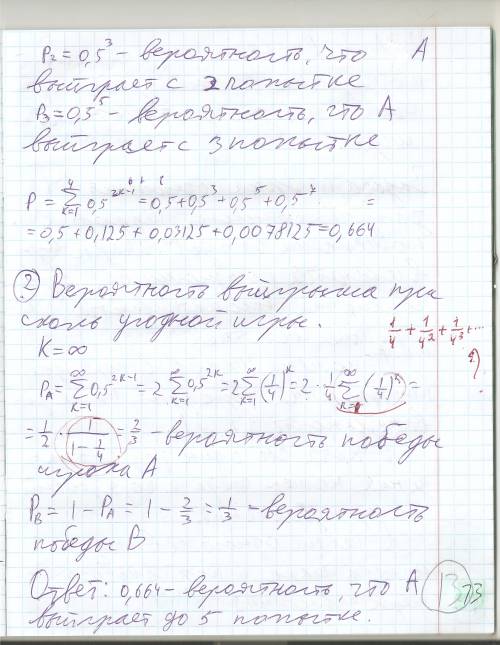 P₂ = 0,5³ – вероятность, что А
выиграет с 2 попытке
P₃ = 0,5⁵ – вероятность, что А
выиграет с 3 попытке
P = ∑_{k=1}^{4} 0,5^{2k-1} = 0,5 + 0,5³ + 0,5⁵ + 0,5⁷ =
= 0,5 + 0,125 + 0,03125 + 0,0078125 = 0,664
② Вероятность выигрыша при
сколь угодной игры.
1/4 + 1/4² + 1/4³ + ...
K = ∞
?
P_A = ∑_{k=1}^{∞} 0,5^{2k-1} = 2 ∑_{k=1}^{∞} 0,5^{2k} = 2 ∑_{k=1}^{∞} (1/4)^k = 2 · 1/4 ∑_{k=0}^{∞} (1/4)^k =
= 1/2 · 1/(1 - 1/4) = 2/3 – вероятность победы
игрока А
P_B = 1 - P_A = 1 - 2/3 = 1/3 – вероятность
победы В
Ответ: 0,664 – вероятность, что А
выиграет до 5 попытке.
13